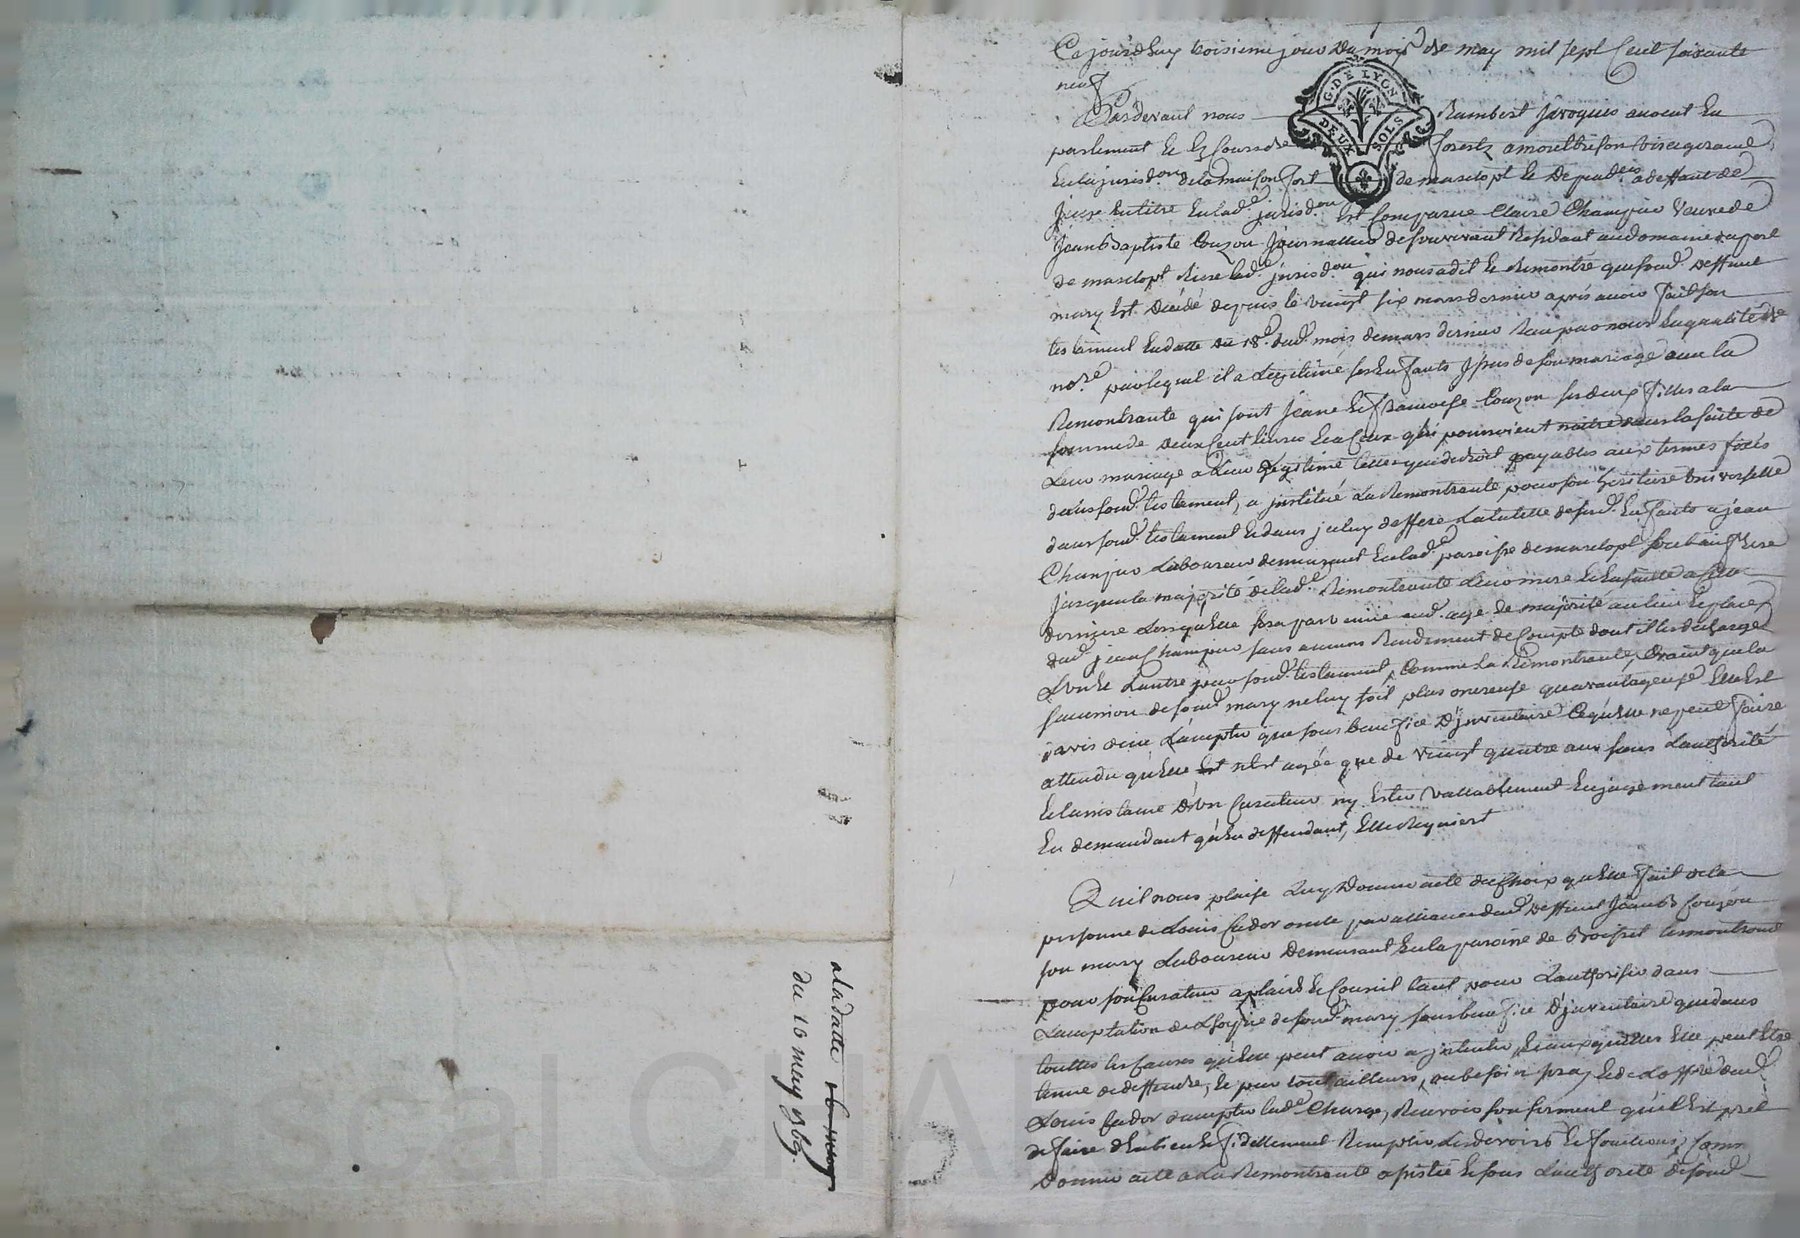 Ce jourdhuy troisieme jour du mois de may mil sept Cent soixante
neuf
Pardevant nous Rambert Jacques avocat En
parlement Et Es Cours de forestz a montbrison vicegerant
En la jurisd.on de la maison fort de marclopt Et Dépend.ces a deffaut de
juge En titre En lad.e jurisd.on Est Comparue Claire Champin veuve de
jean Baptiste Couzon journallier de son vivant Residant au domaine du port
de marclopt Riere lad.e jurisd.on qui nous a dit Et Remontré que son d. deffunt
mary Est décédé depuis le vingt six mars dernier aprés avoir fait son
testament En datte du 18.e dud. mois de mars dernier Reçu par nous En qualité de
no.re par lequel il a Legitimé ses Enfants jssus de son mariage avec la
Remontrante qui sont jeane Et françoise Couzon ses deux filles a la
somme de deux Cent livres Et a Ceux qui pourroient naitre dans la suitte de
Leur mariage a Leur Legitime telle que de droit payables aux termes fixés
dans sond. testament, a jnstitué La Remontrante pour son heritiere universelle
dans sond. testament Et dans jceluy deffere La tutelle de sesd. Enfants a jean
Champin Laboureur demeurant En lad.e paroisse de marclopt son beaufrere
jusqua la majorité de lad.e Remontrante Leur mere Et Ensuitte a Cette
derniere Lorsquelle sera parvenüe aud. age de majorité au lieu Et place
dud. jean Champin sans aucuns Rendement de Compte dont il les decharge
L'un Et Lautre par sond. testament, Comme La Remontrante, Craint que la
succession de sond. mary ne luy soit plus onereuse quavantageuse Elle Est
davis de ne L'accepter que sous benefice D'jnventaire Ce qu'elle ne peut faire
attendu qu'elle est n'est agée que de vingt quatre ans sans Lauthorité
Et lassistance D'un Curateur ny Ester vallablement En jugement tant
En demandant qu'En deffendant, Elle Requiert
Quil nous plaise Luy Donner acte du Choix qu'elle fait de la
personne de Louis Cador oncle par alliance dud. deffunt jean B. Couzon
son mary Laboureur Demeurant En la paroisse de Boisset Lesmontrond
pour son Curateur a plaids Et Conseil tant pour L'authoriser dans
Lacceptation de L'hoirie de sond. mary sous benefice D'jnventaire que dans
touttes les Causes qu'elle peut avoir a jntenter, Et auxquelles Elle peut Etre
tenue de deffendre, Et par tout ailleurs, ou besoin sera, Et de Loffre dud.
Louis Cador d'accepter lad.e Charge, Recevoir son serment qu'il Est pret
de faire d'En bien Et fidellement Remplir Les devoirs Et fonctions, Comme
Donner acte a La Remontrante assistée Et sous Lauthorité de sond.
a la datte du may
du 16 may 1769.